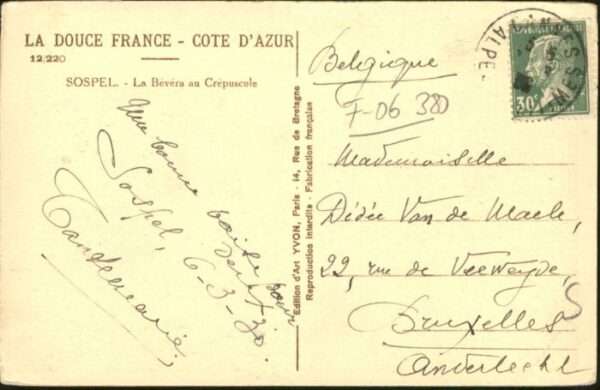 LA DOUCE FRANCE - COTE D'AZUR
12/220
SOSPEL. - La Bévéra au Crépuscule
Une bonne
baise pour
Sospel, 6-3-30.
Tandemarie
Edition d'Art YVON, Paris - 14, Rue de Bretagne
Reproduction interdite - Fabrication française
Belgique
F-06 380
Mademoiselle
Didée Van de Maele,
22, rue de Veeweyde,
Bruxelles
Anderlecht
30c